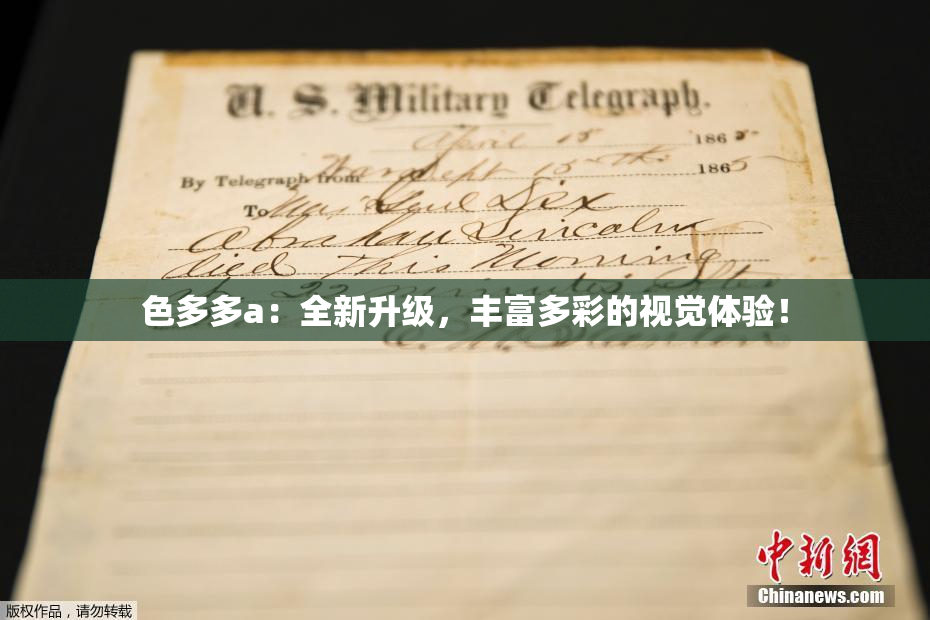 U. S. Military Telegraph.
April 15 1865
By Telegraph from War Dept 15th 1865
To Maj Genl Dix
Abraham Lincoln
died This Morning
22 minutes after
色多多a：全新升级，丰富多彩的视觉体验！
E. M. Stanton
中新網
Chinanews.com
版权作品，请勿转载